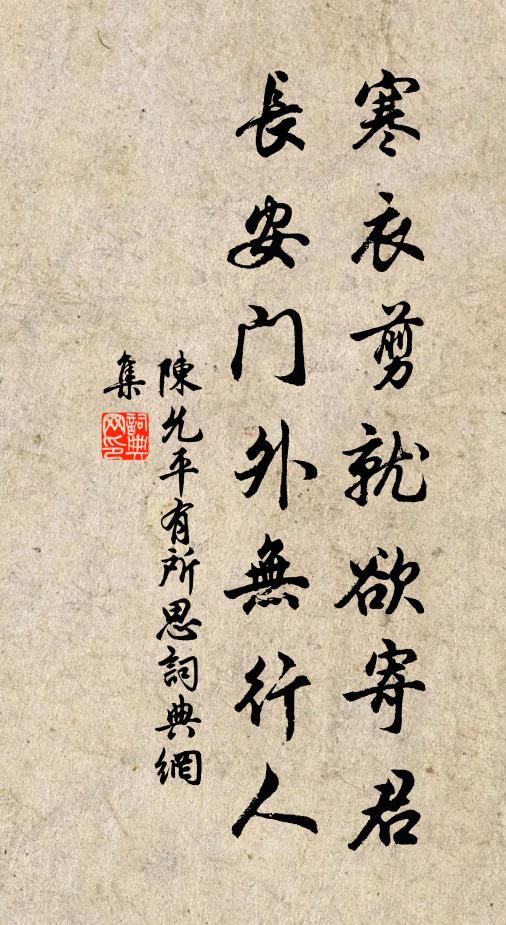 寒衣剪就欲寄君
長安門外無行人
陳允平有所思詞典網
集
詞典
网印